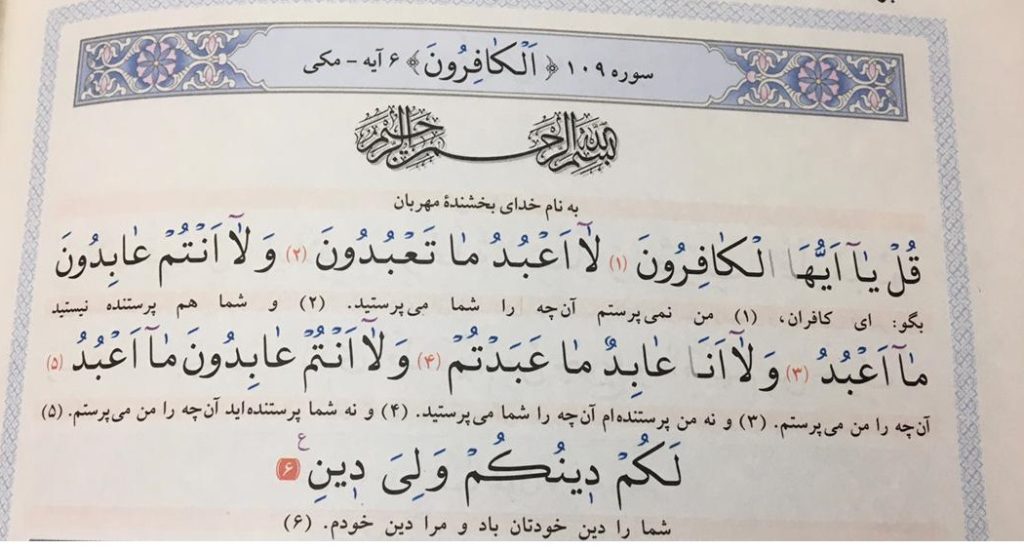 سوره ۱۰۹ ﴿اَلْکٰافِرُونَ﴾ ۶ آیه - مکی
بِسْمِ اللّٰهِ الرَّحْمٰنِ الرَّحِیمِ
به نام خدای بخشندهٔ مهربان
قُلْ یٰۤا اَیُّهَا الْکٰافِرُونَ (۱) لٰۤا اَعْبُدُ مٰا تَعْبُدُونَ (۲) وَ لٰۤا اَنْتُمْ عٰابِدُونَ
بگو: ای کافران، (۱) من نمی‌پرستم آن‌چه را شما می‌پرستید. (۲) و شما هم پرستنده نیستید
مٰۤا اَعْبُدُ (۳) وَ لٰۤا اَنَا عٰابِدٌ مٰا عَبَدْتُمْ (۴) وَ لٰۤا اَنْتُمْ عٰابِدُونَ مٰۤا اَعْبُدُ (۵)
آن‌چه را من می‌پرستم. (۳) و نه من پرستنده‌ام آن‌چه را شما می‌پرستید. (۴) و نه شما پرستنده‌اید آن‌چه را من می‌پرستم. (۵)
لَکُمْ دِینُکُمْ وَلِیَ دِینِ ع ۶
شما را دین خودتان باد و مرا دین خودم. (۶)